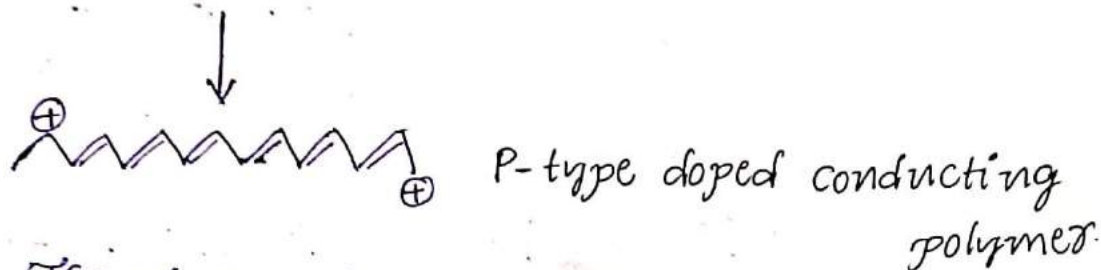 ⊕
P-type doped conducting
⊕
polymer.